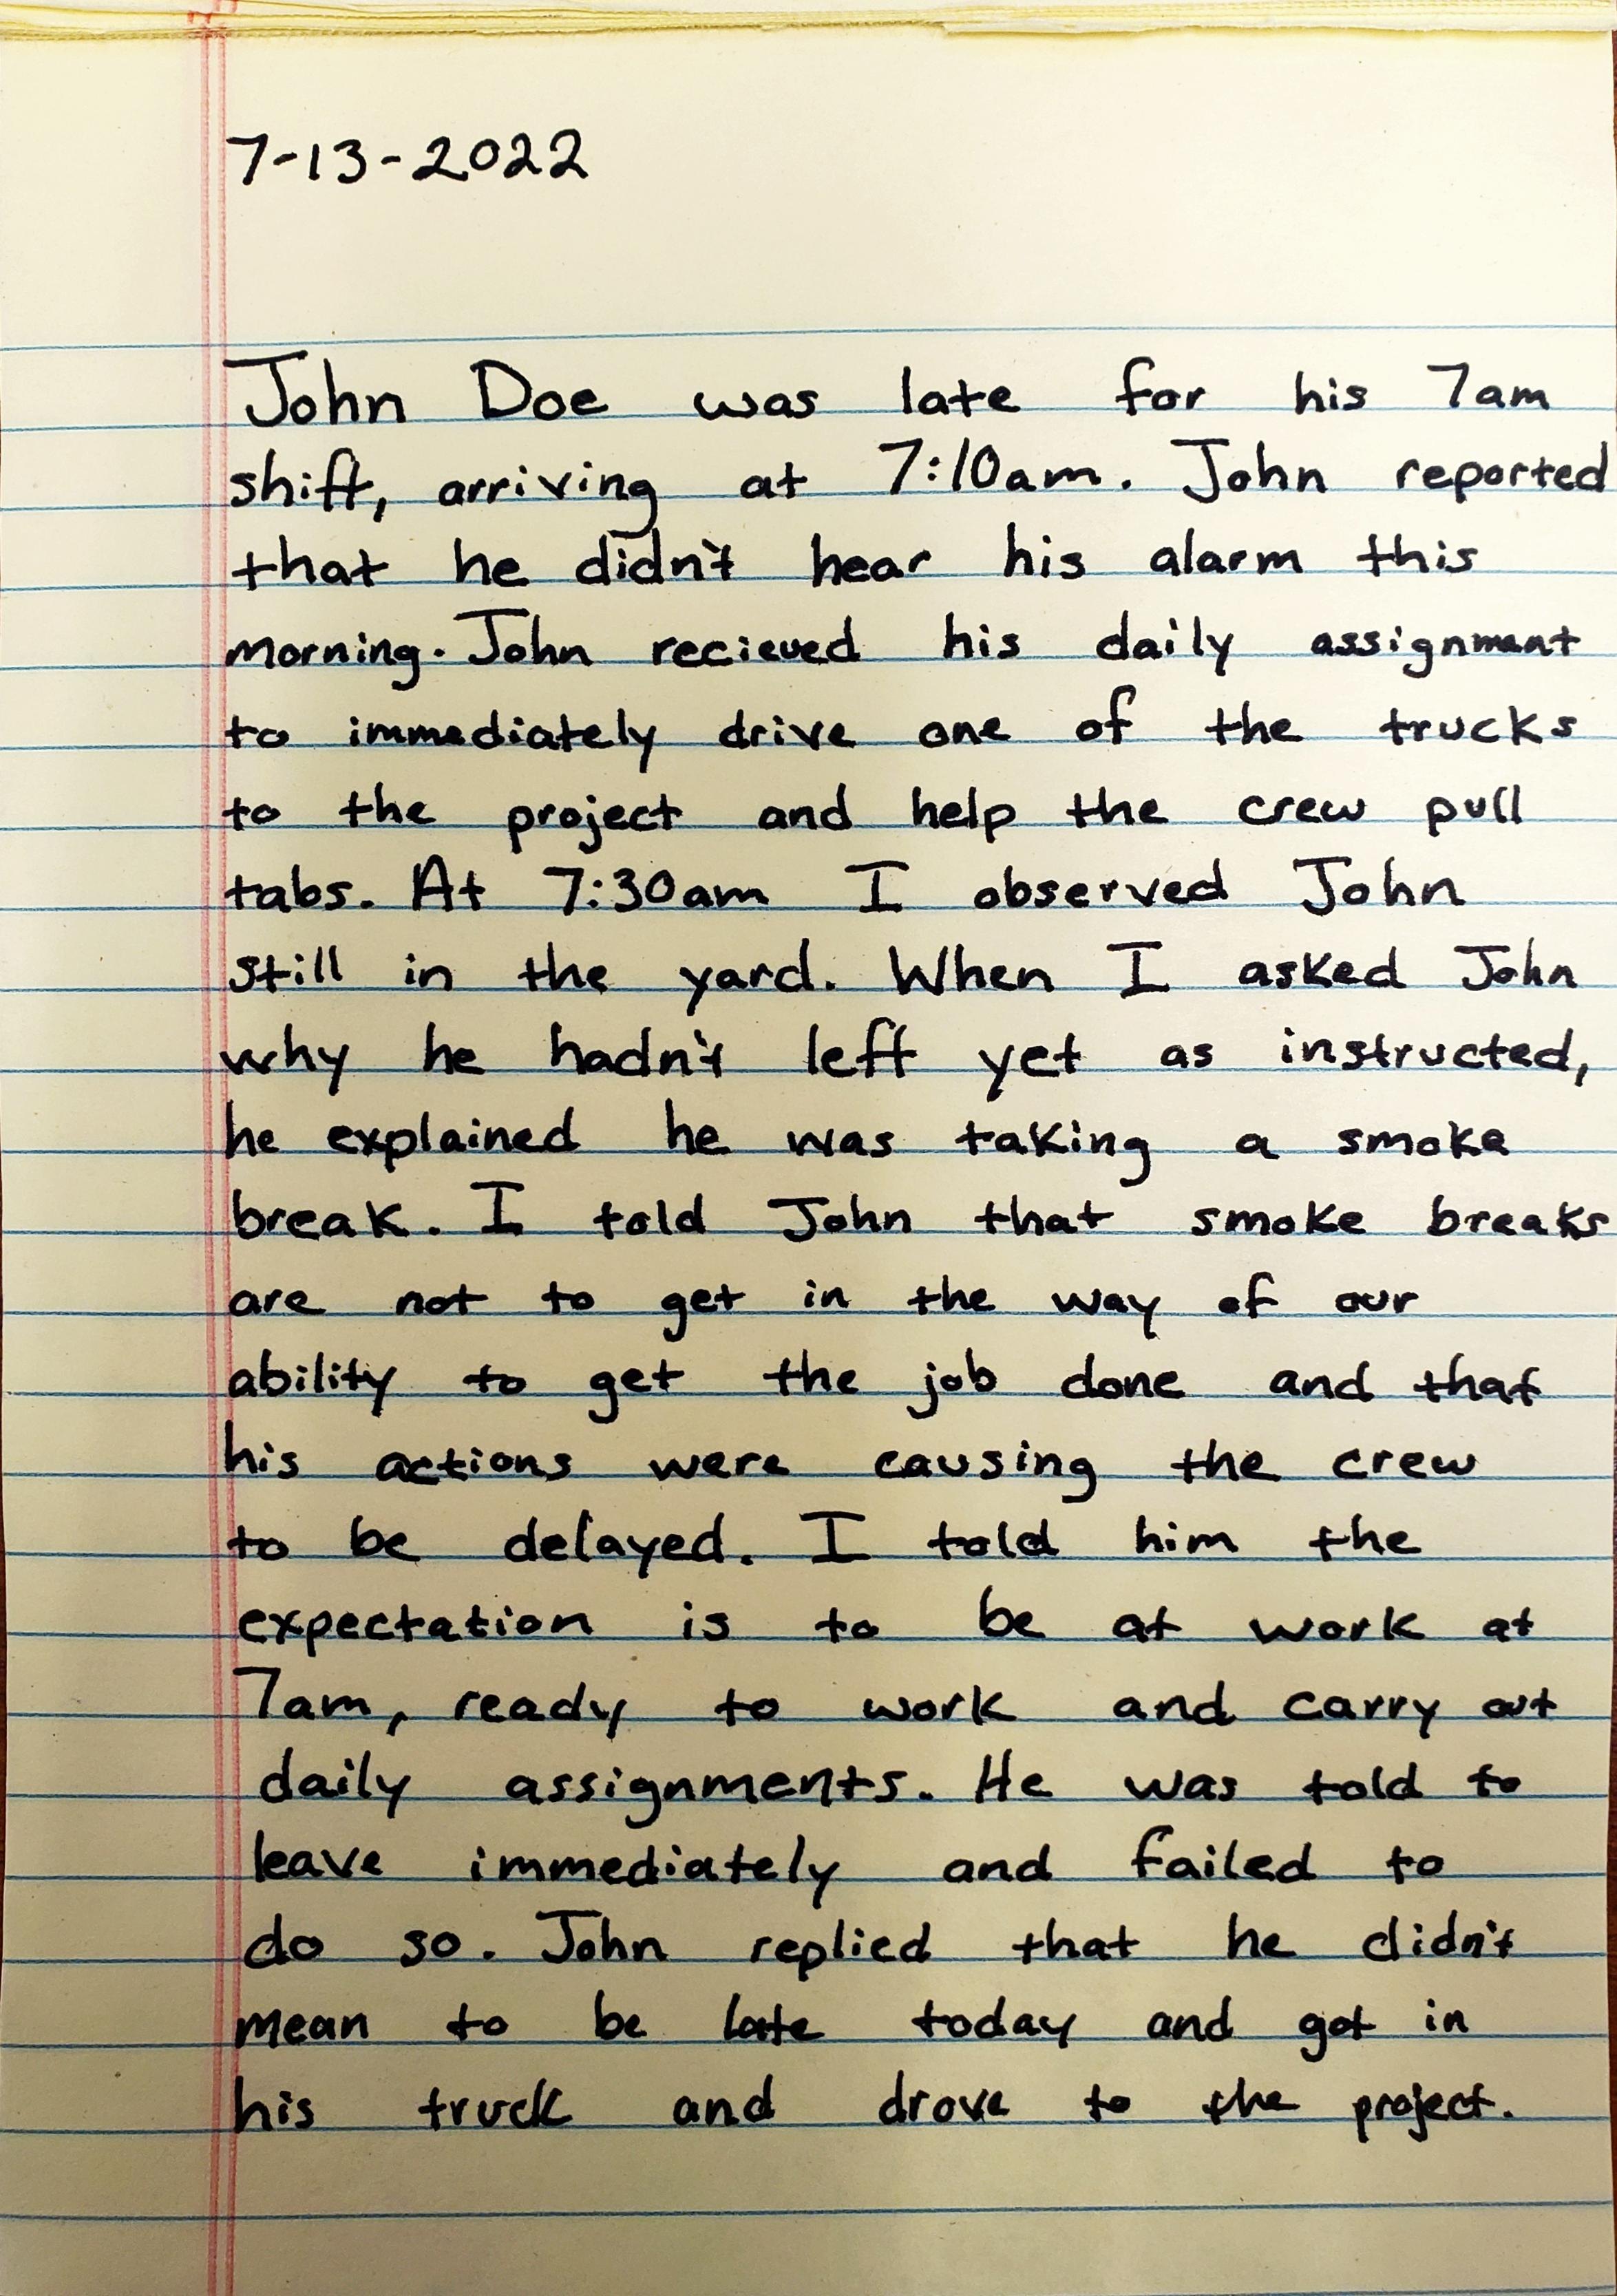 7-13-2022
John Doe was late for his 7am
shift, arriving at 7:10am. John reported
that he didn't hear his alarm this
morning. John recieved his daily assignment
to immediately drive one of the trucks
to the project and help the crew pull
tabs. At 7:30am I observed John
still in the yard. When I asked John
why he hadn't left yet as instructed,
he explained he was taking a smoke
break. I told John that smoke breaks
are not to get in the way of our
ability to get the job done and that
his actions were causing the crew
to be delayed. I told him the
expectation is to be at work at
7am, ready to work and carry out
daily assignments. He was told to
leave immediately and failed to
do so. John replied that he didn't
mean to be late today and got in
his truck and drove to the project.